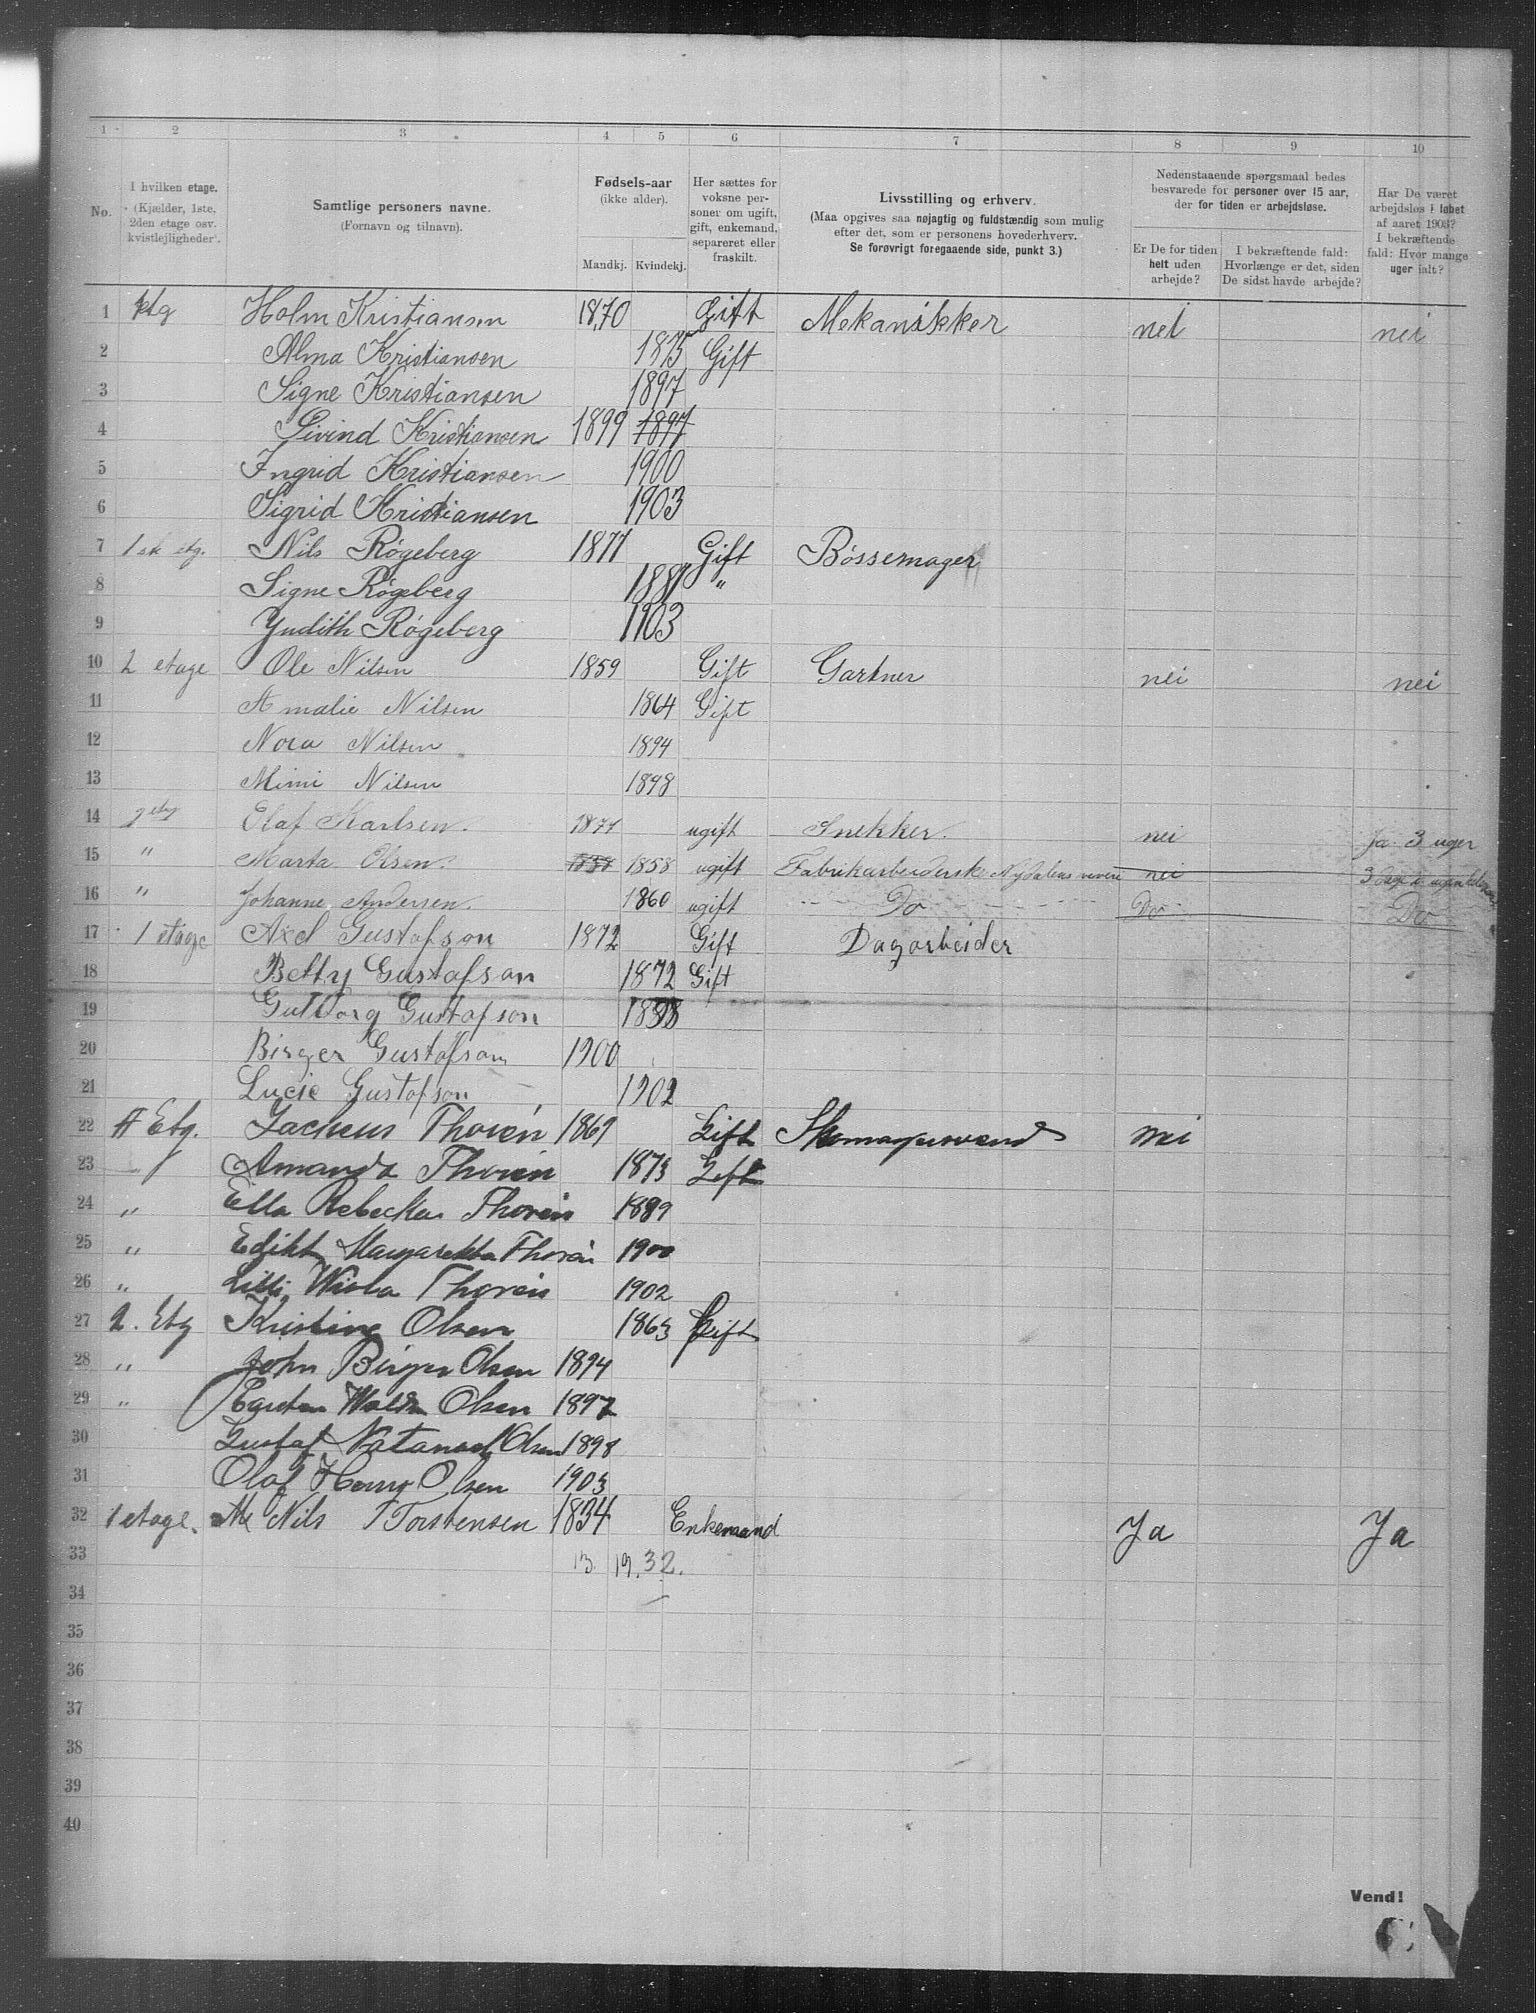 1 2 3 4 5 6 7 8 9 10
No.
I hvilken etage. (Kjælder, 1ste, 2den etage osv. kvistlejligheder).
Samtlige personers navne. (Fornavn og tilnavn).
Fødsels-aar (ikke alder). Mandkj. Kvindekj.
Her sættes for voksne personer om ugift, gift, enkemand, separeret eller fraskilt.
Livsstilling og erhverv. (Maa opgives saa nøjagtig og fuldstændig som mulig efter det, som er personens hovederhverv. Se forøvrigt foregaaende side, punkt 3.)
Nedenstaaende spørgsmaal bedes besvarede for personer over 15 aar, der for tiden er arbejdsløse.
Er De for tiden helt uden arbejde?
I bekræftende fald: Hvorlænge er det, siden De sidst havde arbejde?
Har De været arbejdsløs i løbet af aaret 1903? I bekræftende fald: Hvor mange uger ialt?
1 Holm Kristiansen 1870 Gift Mekanikker nei nei
2 Alma Kristiansen 1875 Gift
3 Signe Kristiansen 1897
4 Eivind Kristiansen 1899 1897
5 Ingrid Kristiansen 1900
6 Sigrid Kristiansen 1903
7 1ste etg. Nils Røgeberg 1877 Gift Bøssemager
8 Signe Røgeberg 1881 "
9 Yudith Røgeberg 1903
10 2 etage Ole Nilsen 1859 Gift Gartner nei nei
11 Amalie Nilsen 1864 Gift
12 Nora Nilsen 1894
13 Mimi Nilsen 1898
14 2 etg Olaf Karlsen. 1877 ugift Snekker. nei Ja 3 uger
15 " Marta Olsen. 1858 1858 ugift Fabrikarbeiderske Nydalens nei
16 " Johanne Andersen. 1860 ugift Do Do Do
17 1 etage Axel Gustafson 1872 Gift Dagarbeider
18 Betty Gustafson 1872 Gift
19 Gustafson 1898
20 Birger Gustafson 1900
21 Lucie Gustafson 1902
22 Etg. Zacheus Thorén 1869 Gift Skomagersvend nei
23 Amanda Thorén 1873 Gift
24 " Ella Rebecka Thorén 1899
25 " Edith Margaretha Thorén 1900
26 " Lilli Wiola Thorén 1902
27 2. Etg Kristine Olsen 1863 Gift
28 " John Birger Olsen 1894
29 " Karsten Olsen 1897
30 Gustaf Natanael Olsen 1898
31 Olaf Henry Olsen 1903
32 1 etage. Nils Torstensen 1834 Enkemand Ja Ja
33 13. 19. 32.
34
35
36
37
38
39
40
Vend!